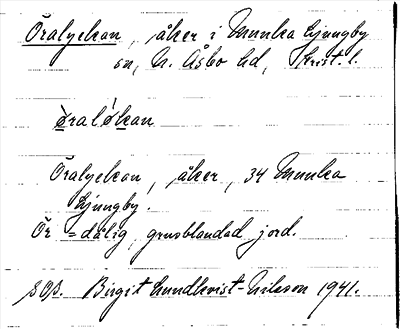 Öralyckan, åker i Munka Ljungby
sn, N. Åsbo hd, Krist. l.
ø̀raløkan
Öralyckan, åker, 34 Munka
Ljungby.
Ör = dålig, grusblandad jord.
SOB. Birgit Lundkvist-Nilsson 1941.